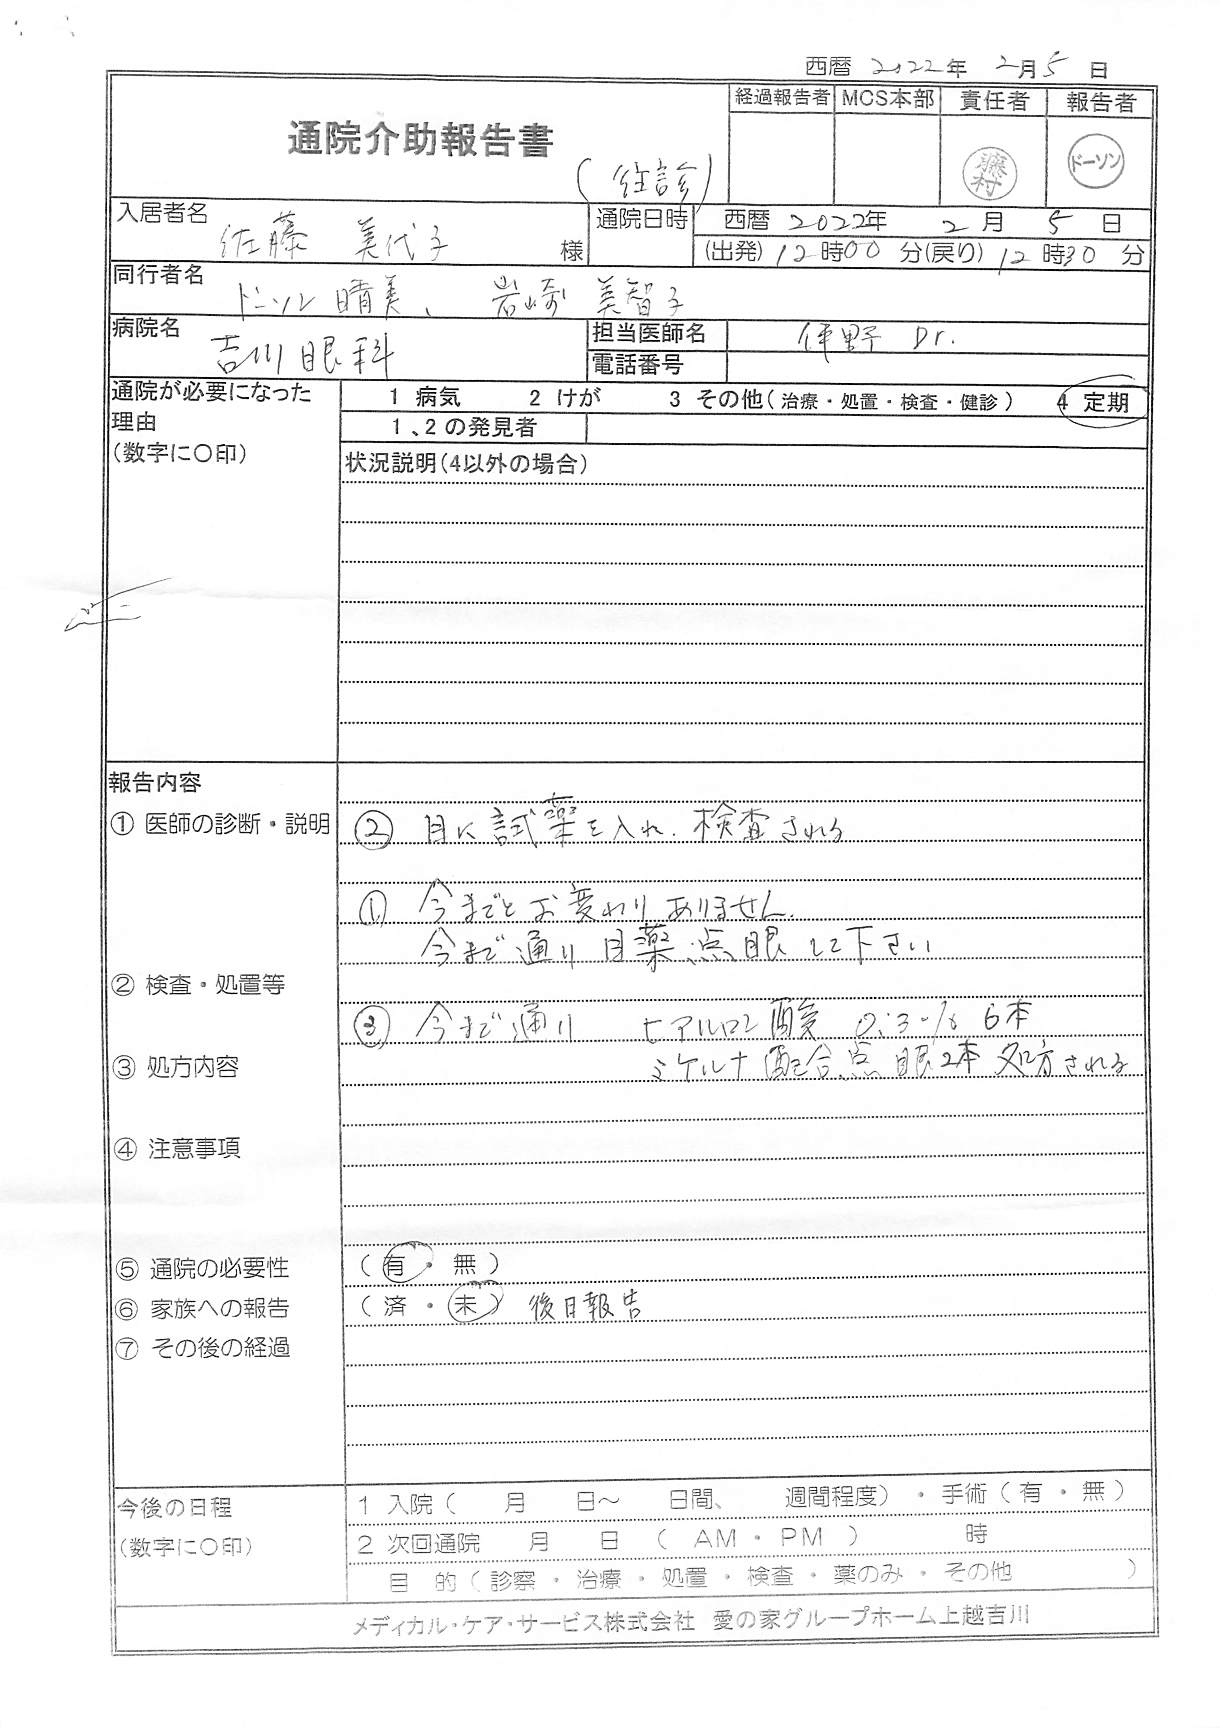 西暦 2022年 2月5日
経過報告者 MCS本部 責任者 報告者
通院介助報告書
(往診)
藤村 ドーソン
入居者名 佐藤 美代子 様
通院日時 西暦 2022年 2月 5日
(出発) 12時00分(戻り) 12時30分
同行者名 ドーソン晴美、岩崎 美智子
病院名 吉川眼科
担当医師名 伊野 Dr.
電話番号
通院が必要になった理由
(数字に○印)
1 病気 2 けが 3 その他(治療・処置・検査・健診) 4 定期
1、2の発見者
状況説明(4以外の場合)
報告内容
① 医師の診断・説明
② 目に試薬を入れ、検査される
① 今までとお変わりありません。
今まで通り目薬点眼して下さい
② 検査・処置等
③ 今まで通り ヒアルロン酸 0.3% 6本
③ 処方内容
ミケルナ配合点眼2本 処方される
④ 注意事項
⑤ 通院の必要性 (有・無)
⑥ 家族への報告 (済・未) 後日報告
⑦ その後の経過
今後の日程
(数字に○印)
1 入院( 月 日~ 日間、 週間程度)・手術(有・無)
2 次回通院 月 日 ( AM・PM ) 時
目 的(診察・治療・処置・検査・薬のみ・その他 )
メディカル・ケア・サービス株式会社 愛の家グループホーム上越吉川